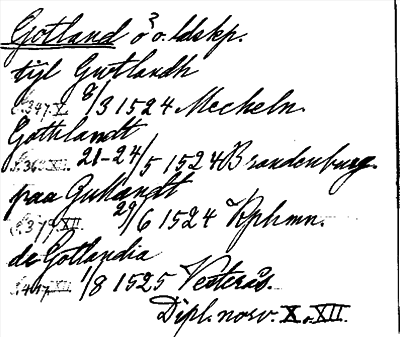 Gotland ö o. ldskp.
tijl Gutlandh
S. 347. X. 8/3 1524 Mecheln.
Gothlandt
21-24/5 1524 Brandenburg.
paa Gullandt
XII. 29/6 1524 Kphmn.
de Gotlandia
1/8 1525 Vesterås.
Dipl. norv. X o. XII.